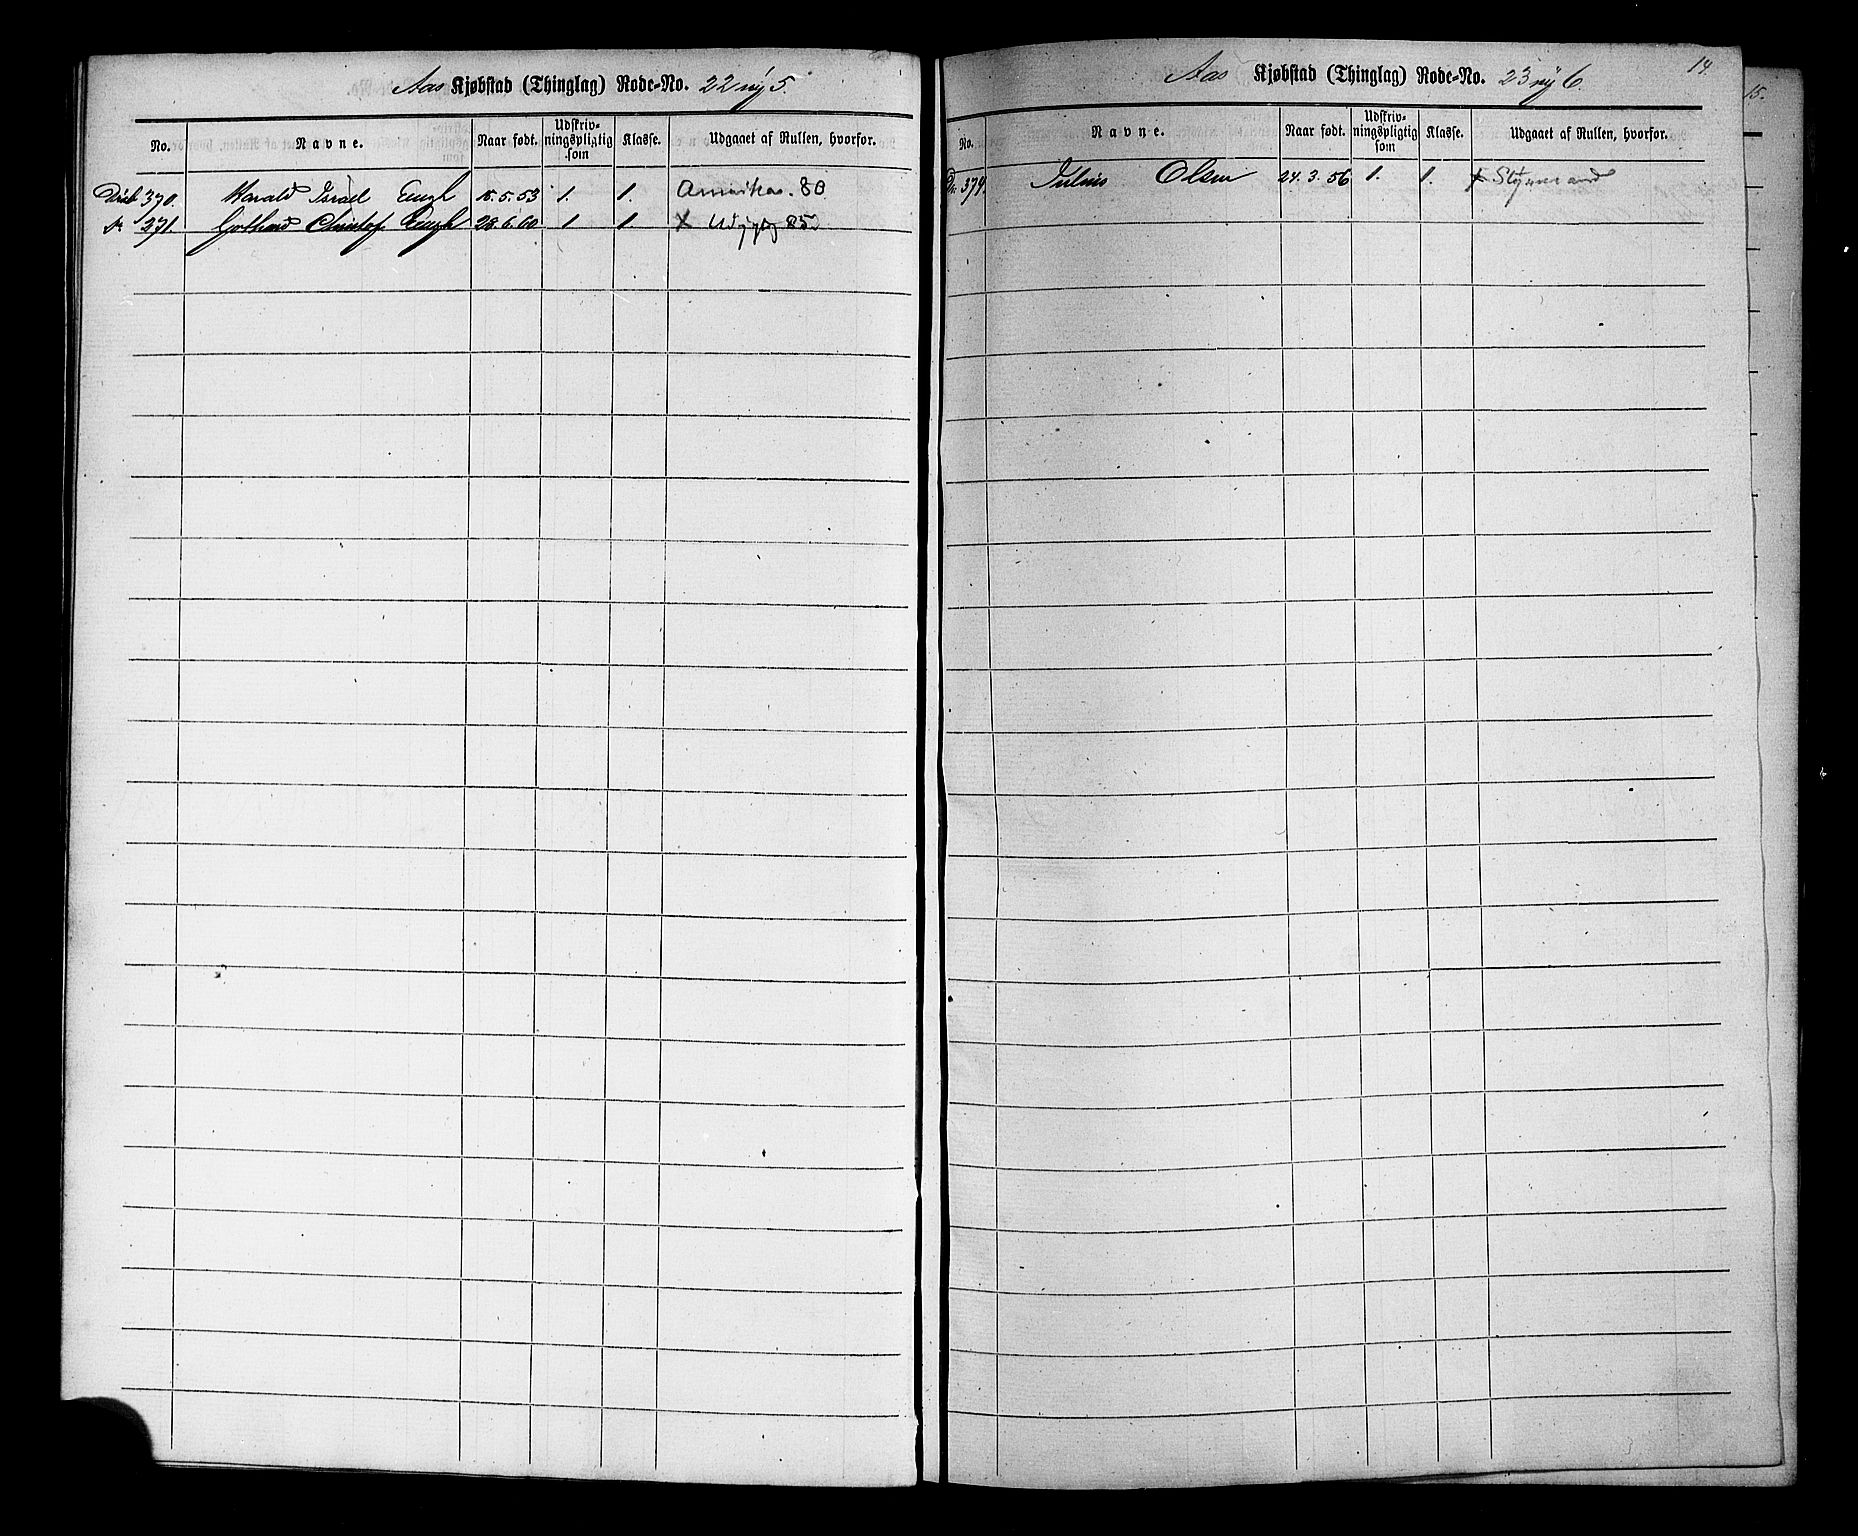 Aas Kjøbstad (Thinglag) Rode-No. 22 ny 5.
No. Navne. Naar født. Udskriv-ningspligtig som Klasse. Udgaaet af Rullen, hvorfor.
370. Harald Israel Engh 15.5.53 1. 1. Amerika. 80
271. Gothard Christof. Engh 28.6.60 1 1. X Udygtig 85
14.
Aas Kjøbstad (Thinglag) Rode-No. 23 ny 6.
No. Navne. Naar født. Udskriv-ningspligtig som Klasse. Udgaaet af Rullen, hvorfor.
379. Julius Olsen 24.3.56 1. 1. X Styrmand
15.